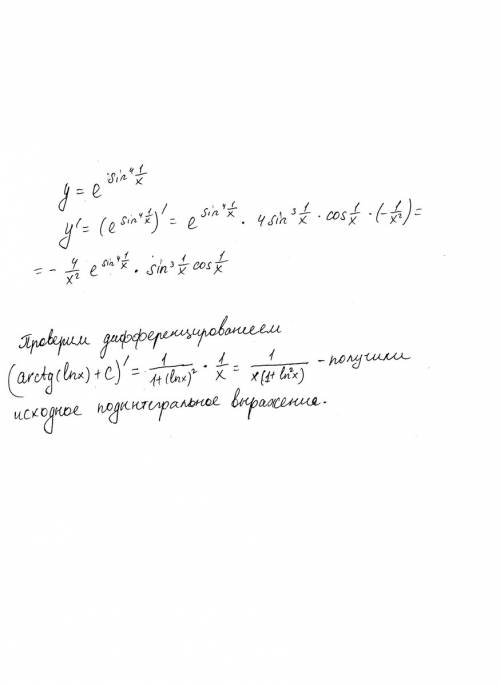 y = e^{sin⁴ 1/x}
y' = (e^{sin⁴ 1/x})' = e^{sin⁴ 1/x} · 4 sin³ 1/x · cos 1/x · (-1/x²) =
= - 4/x² e^{sin⁴ 1/x} · sin³ 1/x cos 1/x
Проверим дифференцированием
(arctg(lnx)+C)' = 1/(1+(lnx)²) · 1/x = 1/(x(1+ln²x)) - получили
исходное подынтегральное выражение.